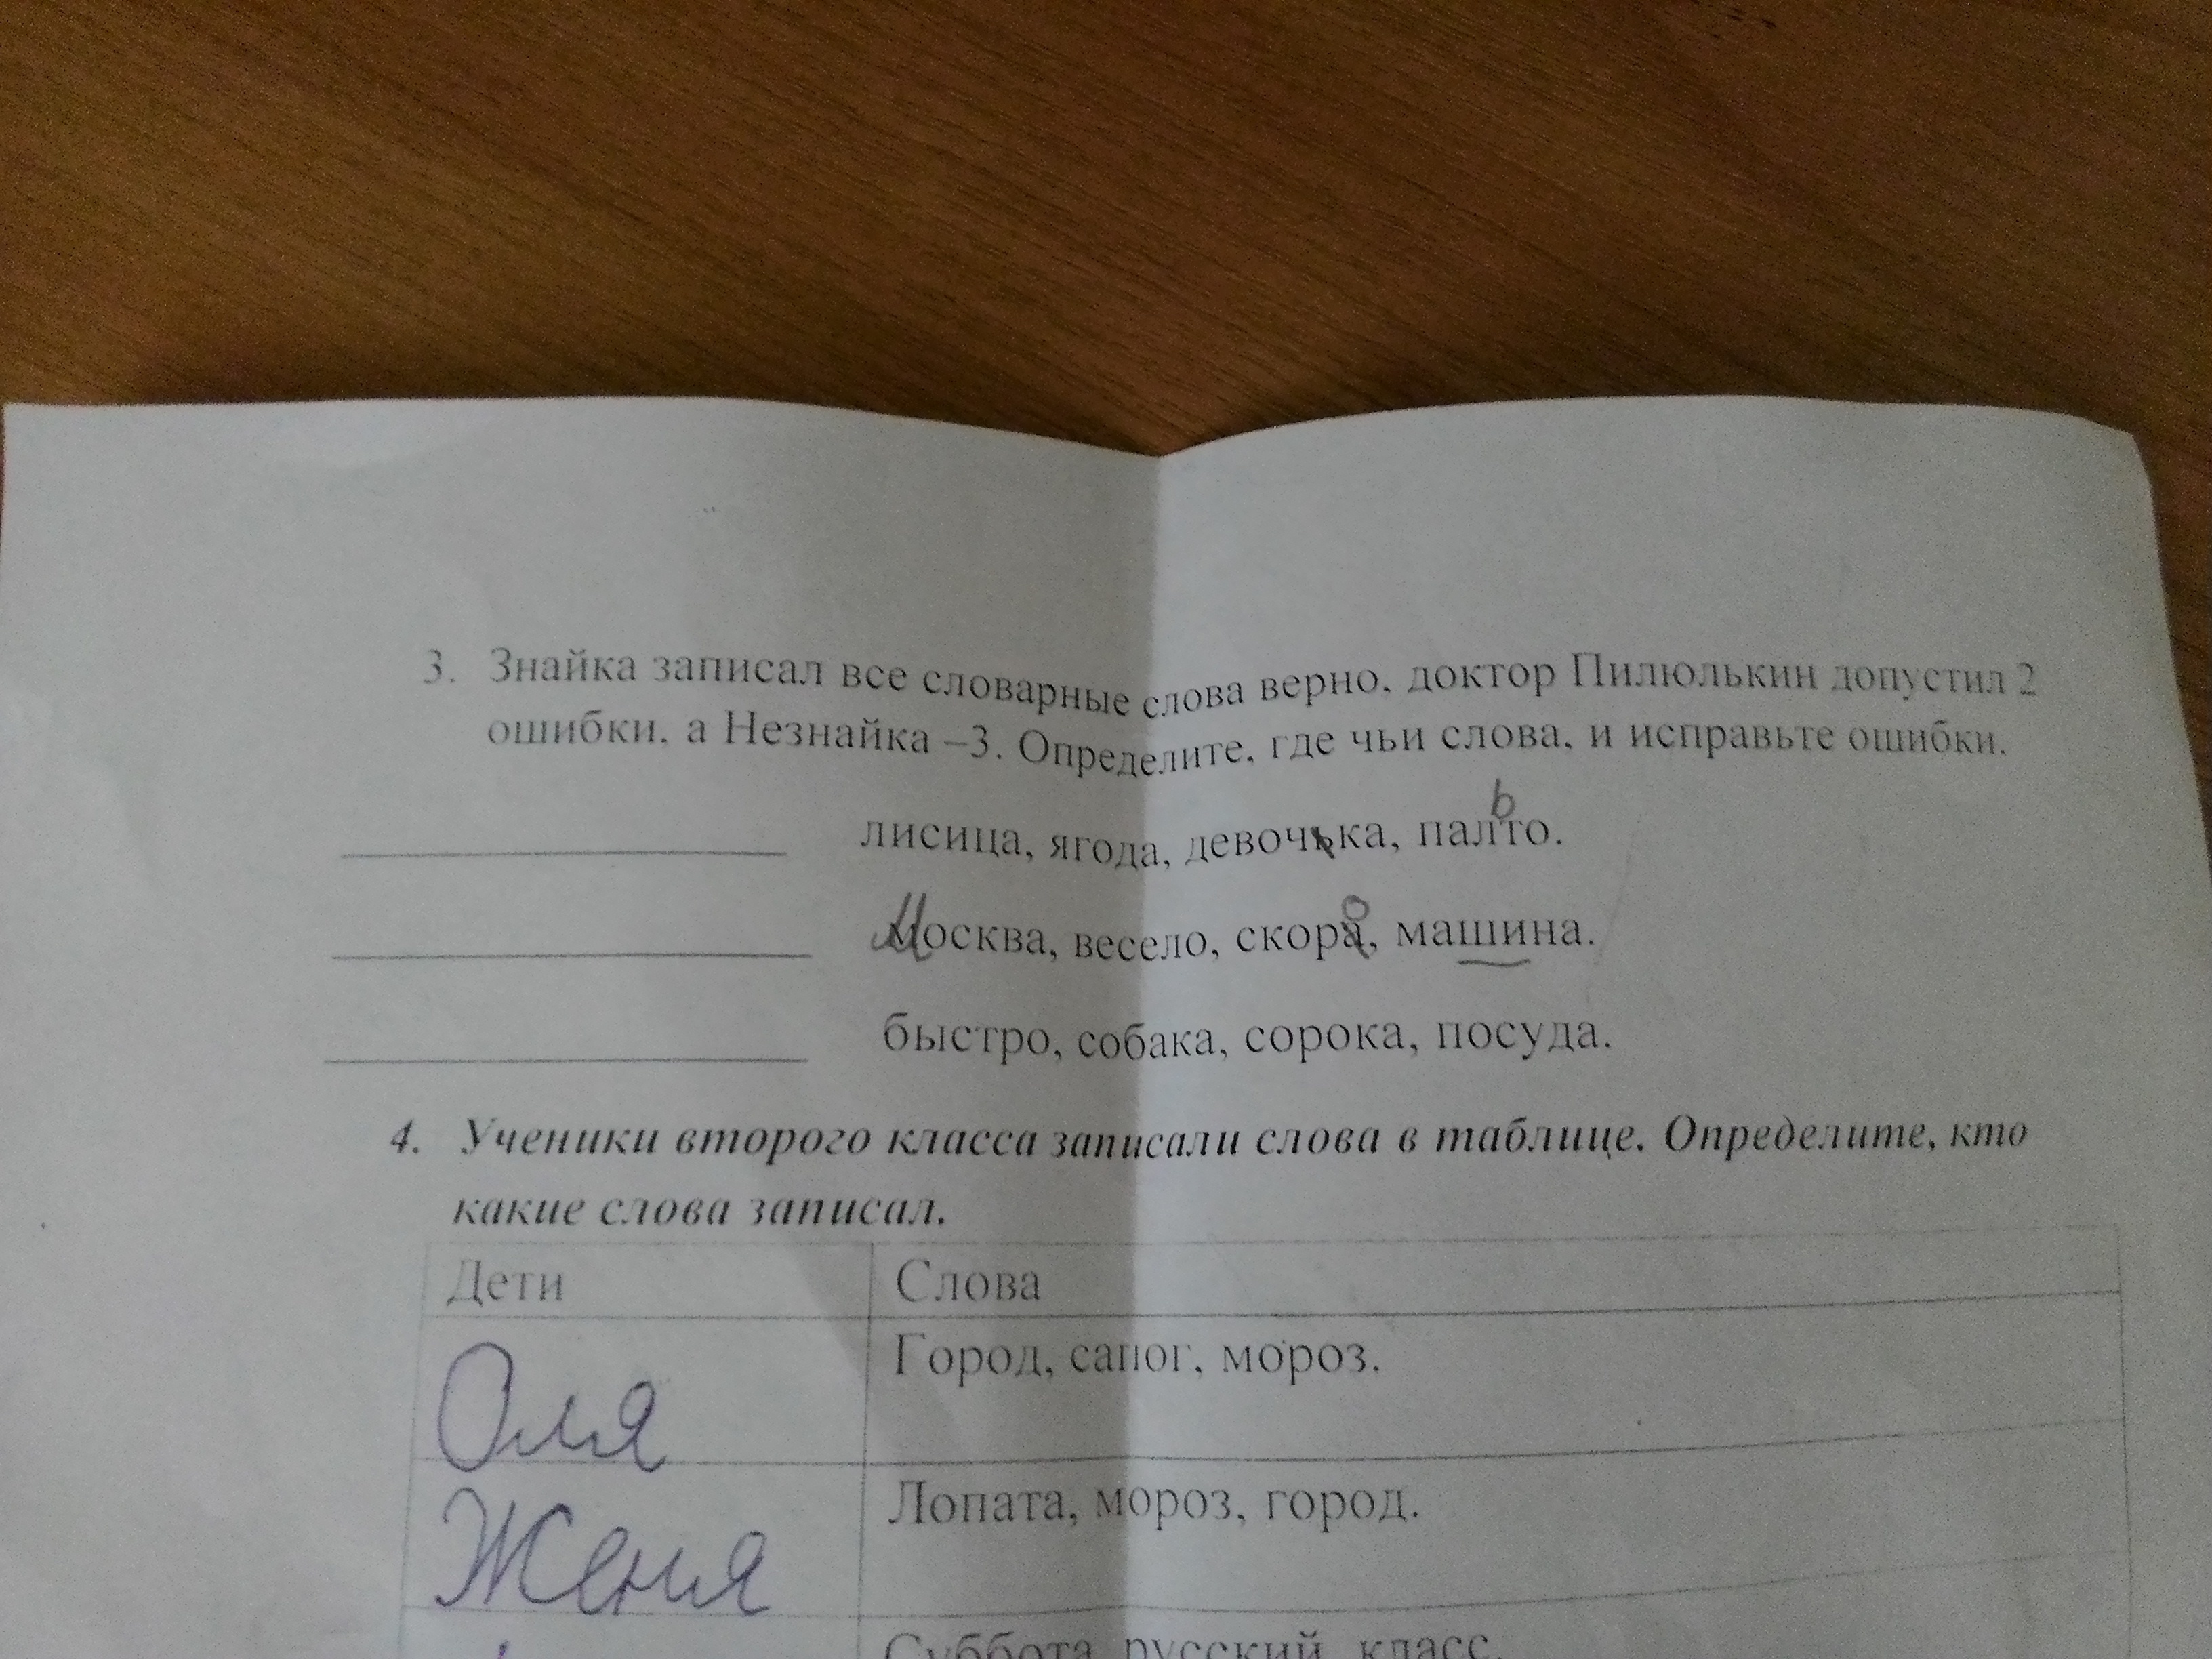 3. Знайка записал все словарные слова верно, доктор Пилюлькин допустил 2
ошибки, а Незнайка –3. Определите, где чьи слова, и исправьте ошибки.
ь
лисица, ягода, девочька, палто.
о
Москва, весело, скора, машина.
быстро, собака, сорока, посуда.
4. Ученики второго класса записали слова в таблице. Определите, кто
какие слова записал.
Дети Слова
Город, сапог, мороз.
Оля
Лопата, мороз, город.
Женя
Суббота, русский, класс.